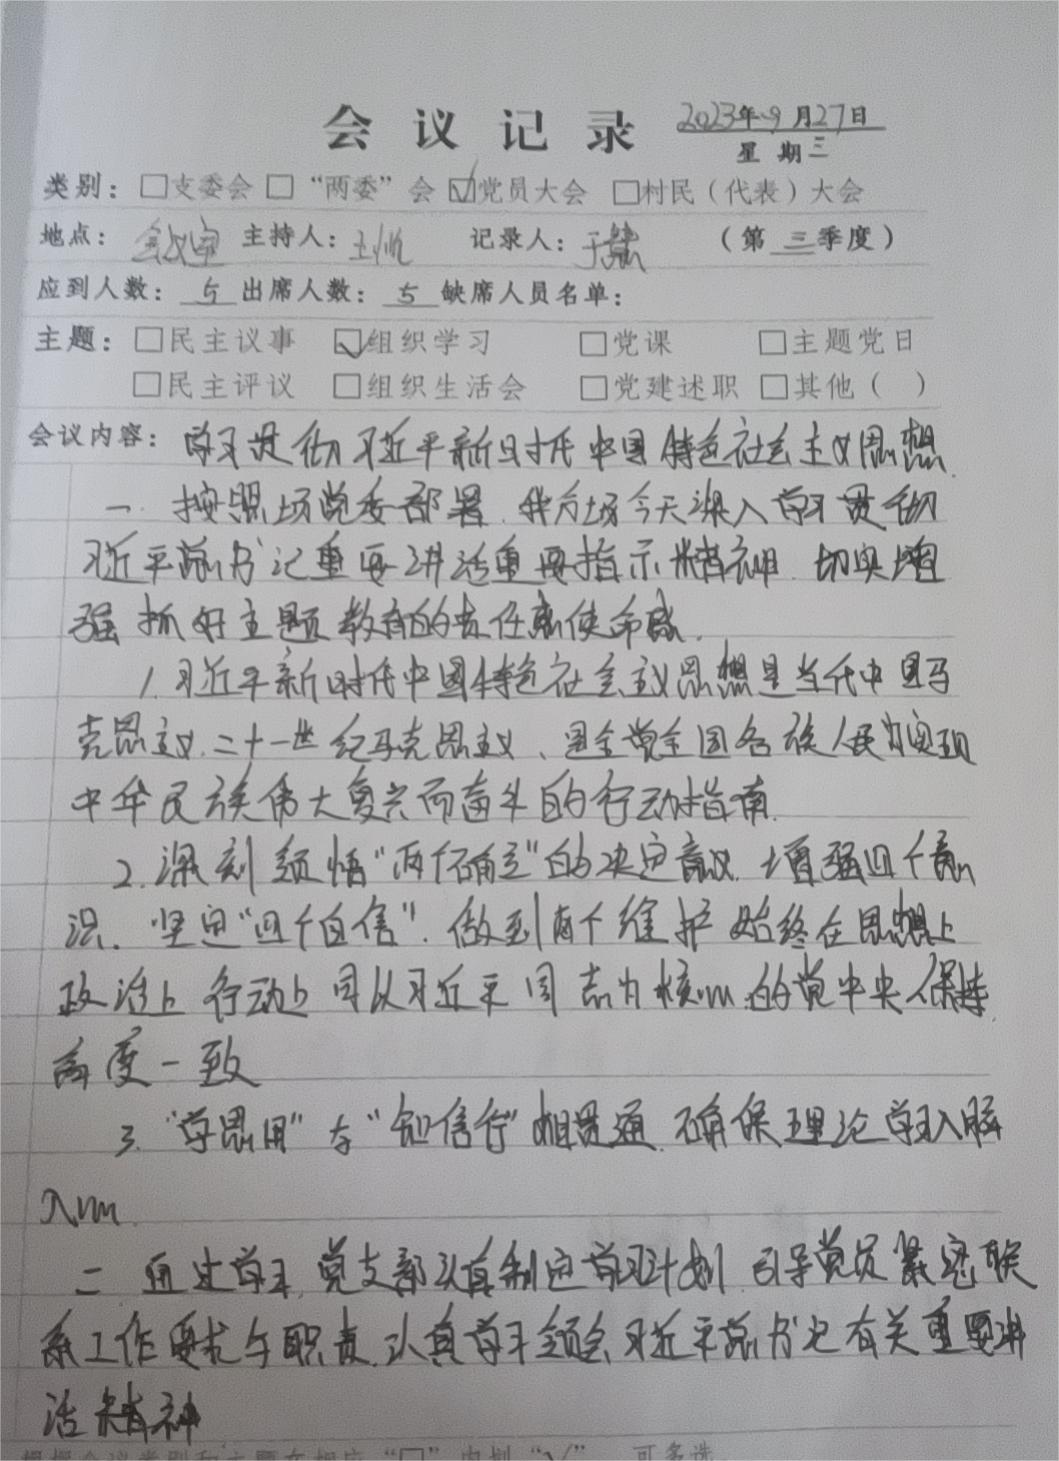 会议记录 2023年9月27日
星期三
类别：□支委会 □“两委”会 ☑党员大会 □村民（代表）大会
地点：会议室 主持人：王帅 记录人：于 （第三季度）
应到人数：5 出席人数：5 缺席人员名单：
主题：□民主议事 ☑组织学习 □党课 □主题党日
□民主评议 □组织生活会 □党建述职 □其他（ ）
会议内容：学习贯彻习近平新时代中国特色社会主义思想
一. 按照场党委部署，我分场今天深入学习贯彻
习近平总书记重要讲话重要指示精神，切实增
强抓好主题教育的责任感使命感.
1.习近平新时代中国特色社会主义思想是当代中国马
克思主义.二十一世纪马克思主义、是全党全国各族人民为实现
中华民族伟大复兴而奋斗的行动指南.
2.深刻领悟“两个确立”的决定意义.增强四个意
识.坚定“四个自信”.做到两个维护 始终在思想上
政治上 行动上同以习近平同志为核心的党中央保持
高度一致
3.“学思用”与“知信行”相贯通.确保理论学习入脑
入心.
二 通过学习,党支部认真制定学习计划 引导党员紧密联
系工作要求与职责.认真学习领会习近平总书记有关重要讲
话精神
根据会议类别和主题在相应“□”内划“√”，可多选。